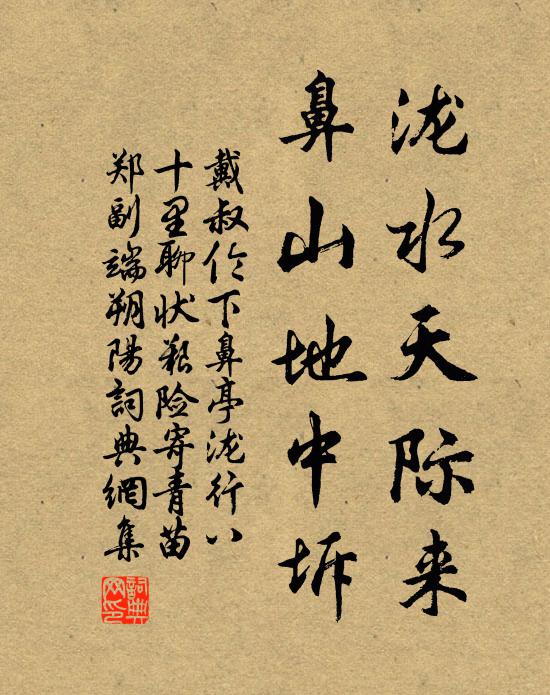 泷水天际来
鼻山地中坼
戴叔伦下鼻亭泷行八
十里聊状艰险寄青苗
郑副端朔阳詞典網集
詞典网印